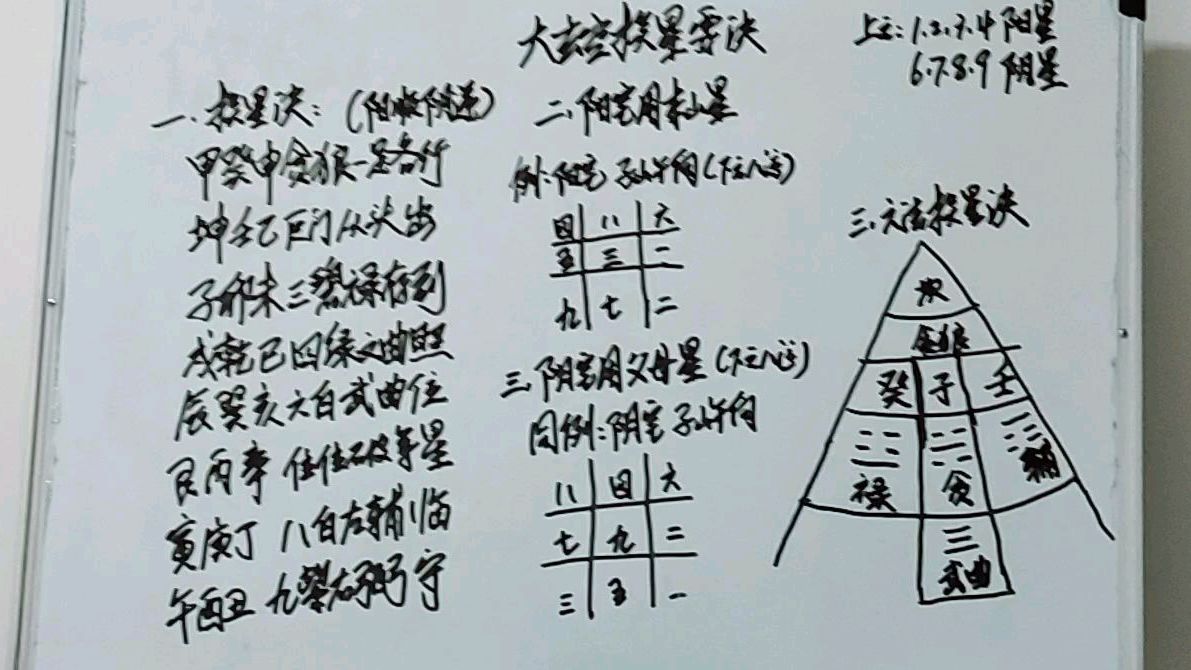 大玄空挨星要诀
上元:1.2.3.4阳星
6.7.8.9阴星
一.挨星决:(阳顺阴逆)
甲癸申贪狼一路行
坤壬乙巨门从头出
子卯未三碧禄存到
戌乾巳四绿文曲照
辰巽亥六白武曲位
艮丙辛位位破军星
寅庚丁八白左辅临
午酉丑九紫右弼守
二.阳宅用本山星
例:阳宅子山午向(下元八运)
四 八 六
五 三 二
九 七 二
三.阴宅用父母星(下元八运)
同例:阴宅子山午向
八 四 六
七 九 二
三 五 一
三.六法挨星决
坎
贪狼
癸 子 壬
禄 贪 辅
武曲